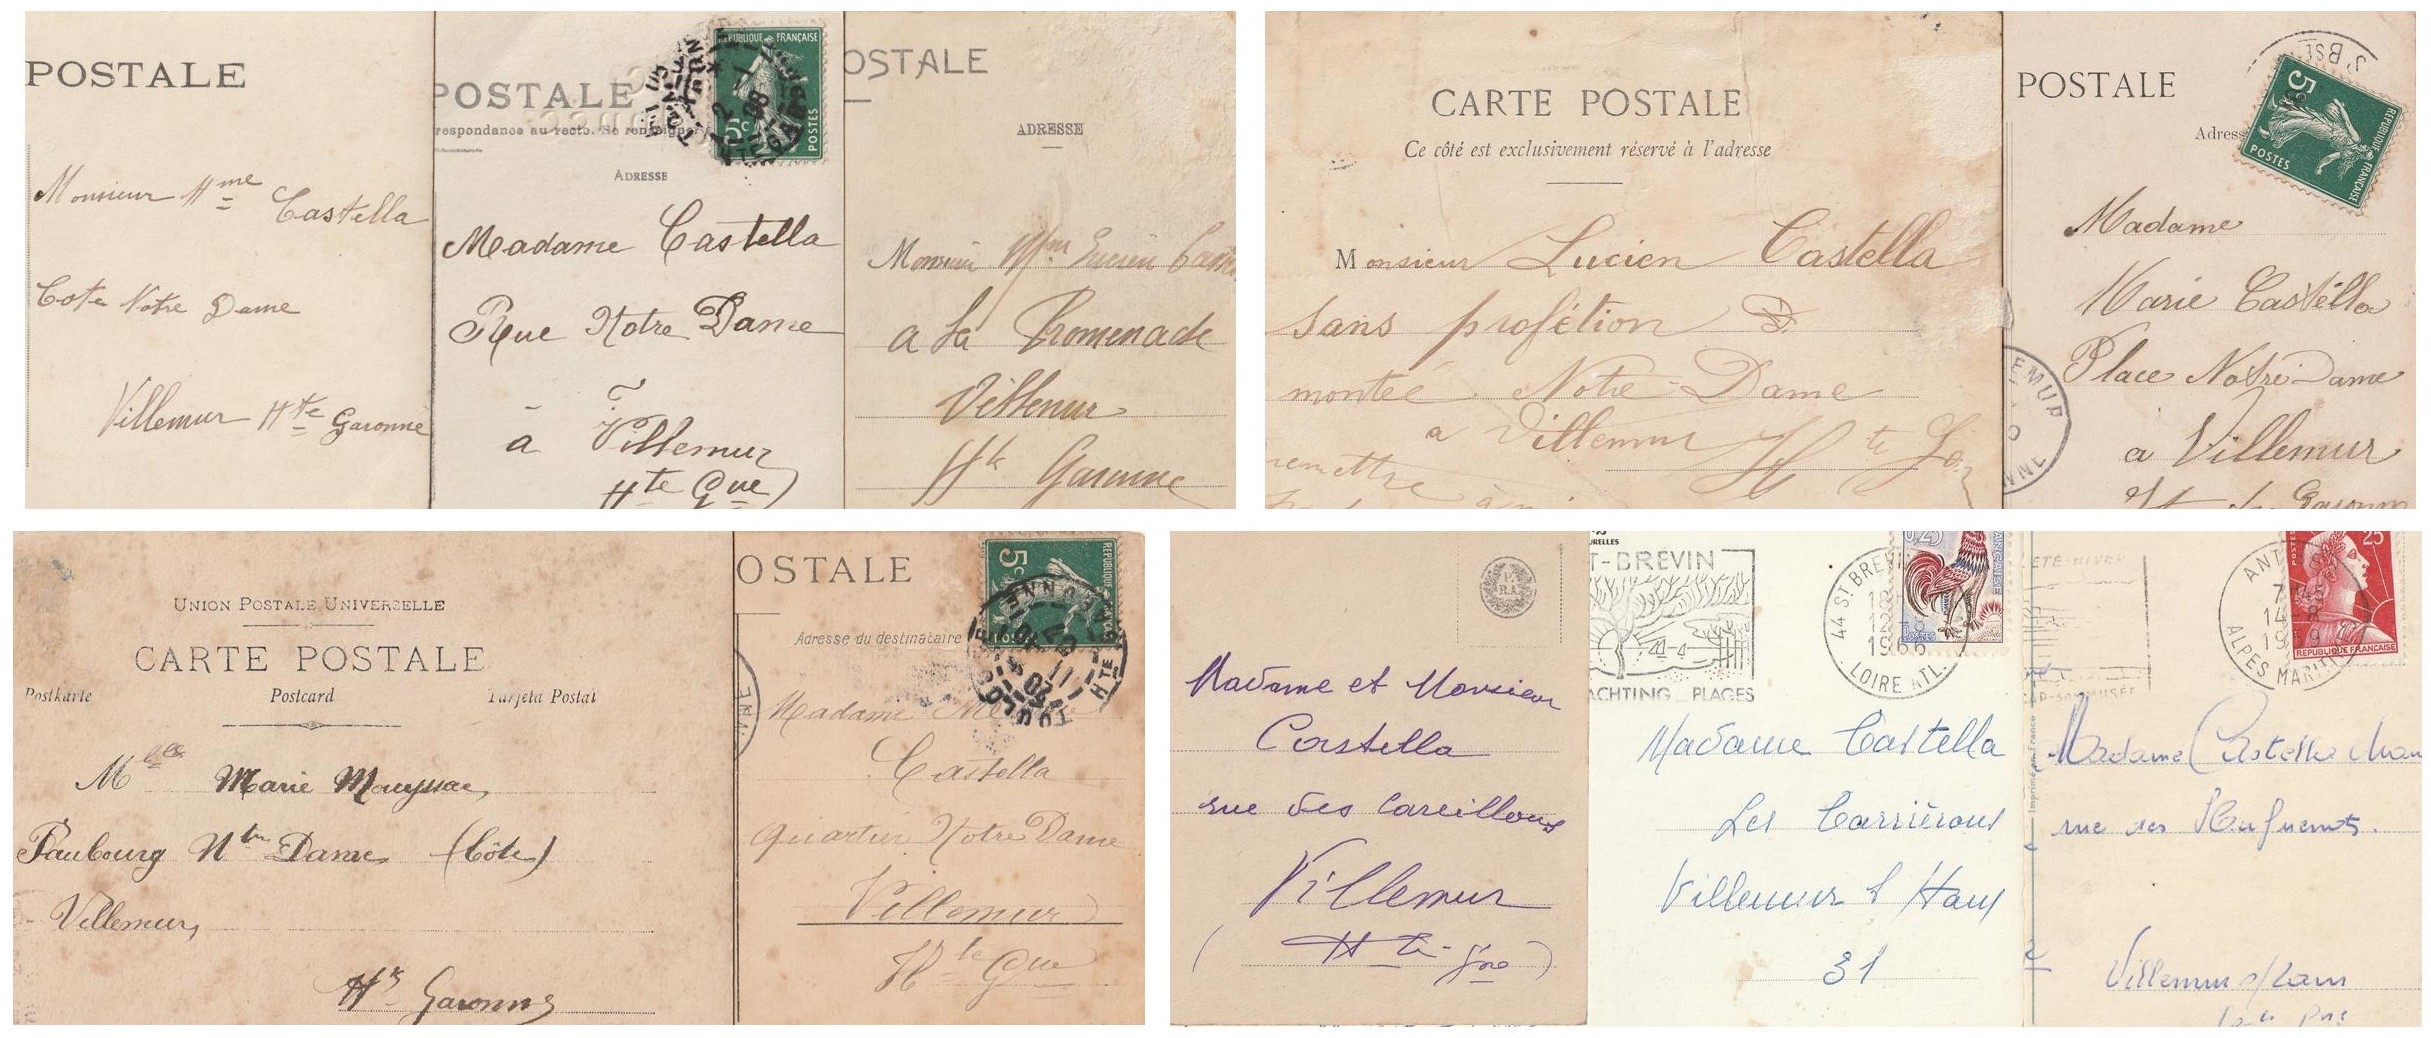 POSTALE
Monsieur Mme Castella
Cote Notre Dame
Villemur Hte Garonne
POSTALE
respondance au recto. Se renseigner
REPUBLIQUE FRANÇAISE
5c
POSTES
ADRESSE
Madame Castella
Rue Notre Dame
à Villemur
Hte Gne
OSTALE
ADRESSE
Monsieur Mme Lucien
a La Promenade
Villemur
Hte Garonne
CARTE POSTALE
Ce côté est exclusivement réservé à l'adresse
Monsieur Lucien Castella
Sans profétion
monteé Notre-Dame
a Villemur Hte
remettre à
POSTALE
5c
POSTES
REPUBLIQUE FRANÇAISE
Adress
Madame
Marie Castélla
Place Notre-Dame
a Villemur
EMUR
NNE
UNION POSTALE UNIVERSELLE
CARTE POSTALE
Postkarte Postcard Tarjeta Postal
Mlle Marie Mouyssac
Faubourg Ntre Dame (Côte)
Villemur,
Hte Garonne
OSTALE
5c
Adresse du destinataire
Madame
Castella
quartier Notre Dame
Villemur
Hte Gne
Madame et Monsieur
Castella
rue des Careillous
Villemur
(Hte-Gne)
RELLES
T-BRÉVIN
YACHTING PLAGES
44 ST BREVIN
1966
LOIRE ATL.
0,25
Madame Castella
Les Carrièrous
Villemur s/ Tarn
31
ÉTÉ-HIVER
ANT
14
1959
ALPES MARIT
25
POSTES
REPUBLIQUE FRANÇAISE
Imprimé en France
Madame Castella
rue des
Villemur s/Tarn